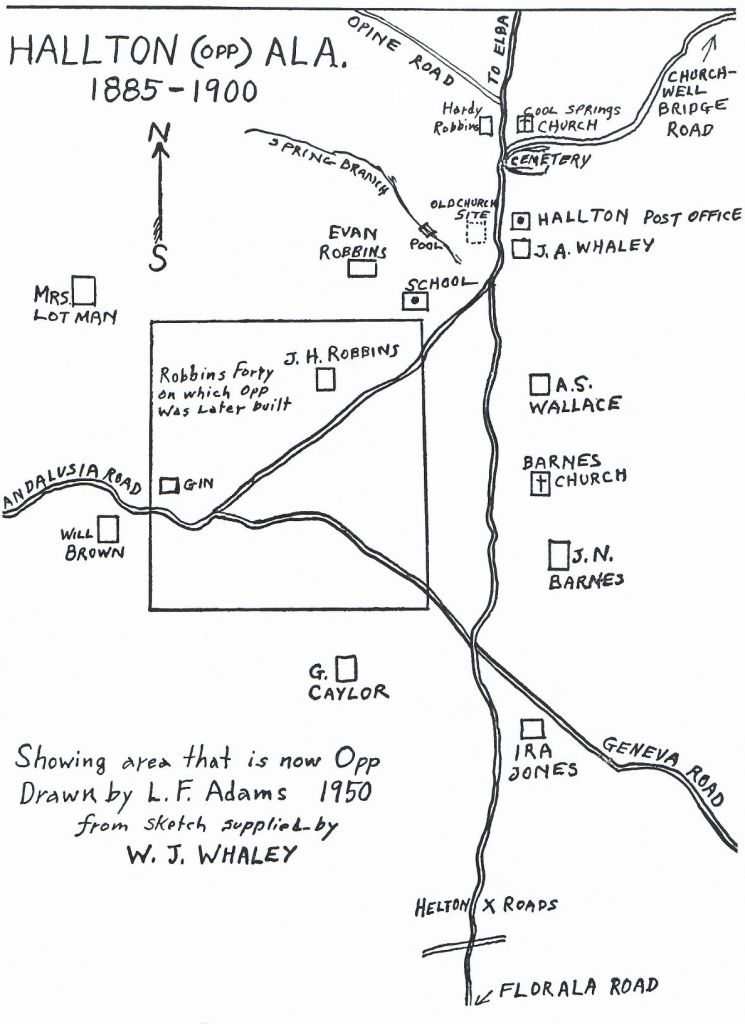 HALLTON (OPP) ALA.
1885-1900
OPINE ROAD
TO ELBA
CHURCH-
WELL
BRIDGE
ROAD
Hardy
Robbins
COOL SPRINGS
CHURCH
CEMETERY
N
S
SPRING BRANCH
POOL
OLD CHURCH
SITE
HALLTON POST OFFICE
J.A. WHALEY
EVAN
ROBBINS
SCHOOL
MRS.
LOTMAN
J. H. ROBBINS
Robbins Forty
on which Opp
was Later built
A.S.
WALLACE
BARNES
CHURCH
ANDALUSIA ROAD
GIN
WILL
BROWN
J.N.
BARNES
G.
CAYLOR
IRA
JONES
GENEVA ROAD
Showing area that is now Opp
Drawn by L.F. Adams 1950
from sketch supplied by
W. J. WHALEY
HELTON X ROADS
FLORALA ROAD